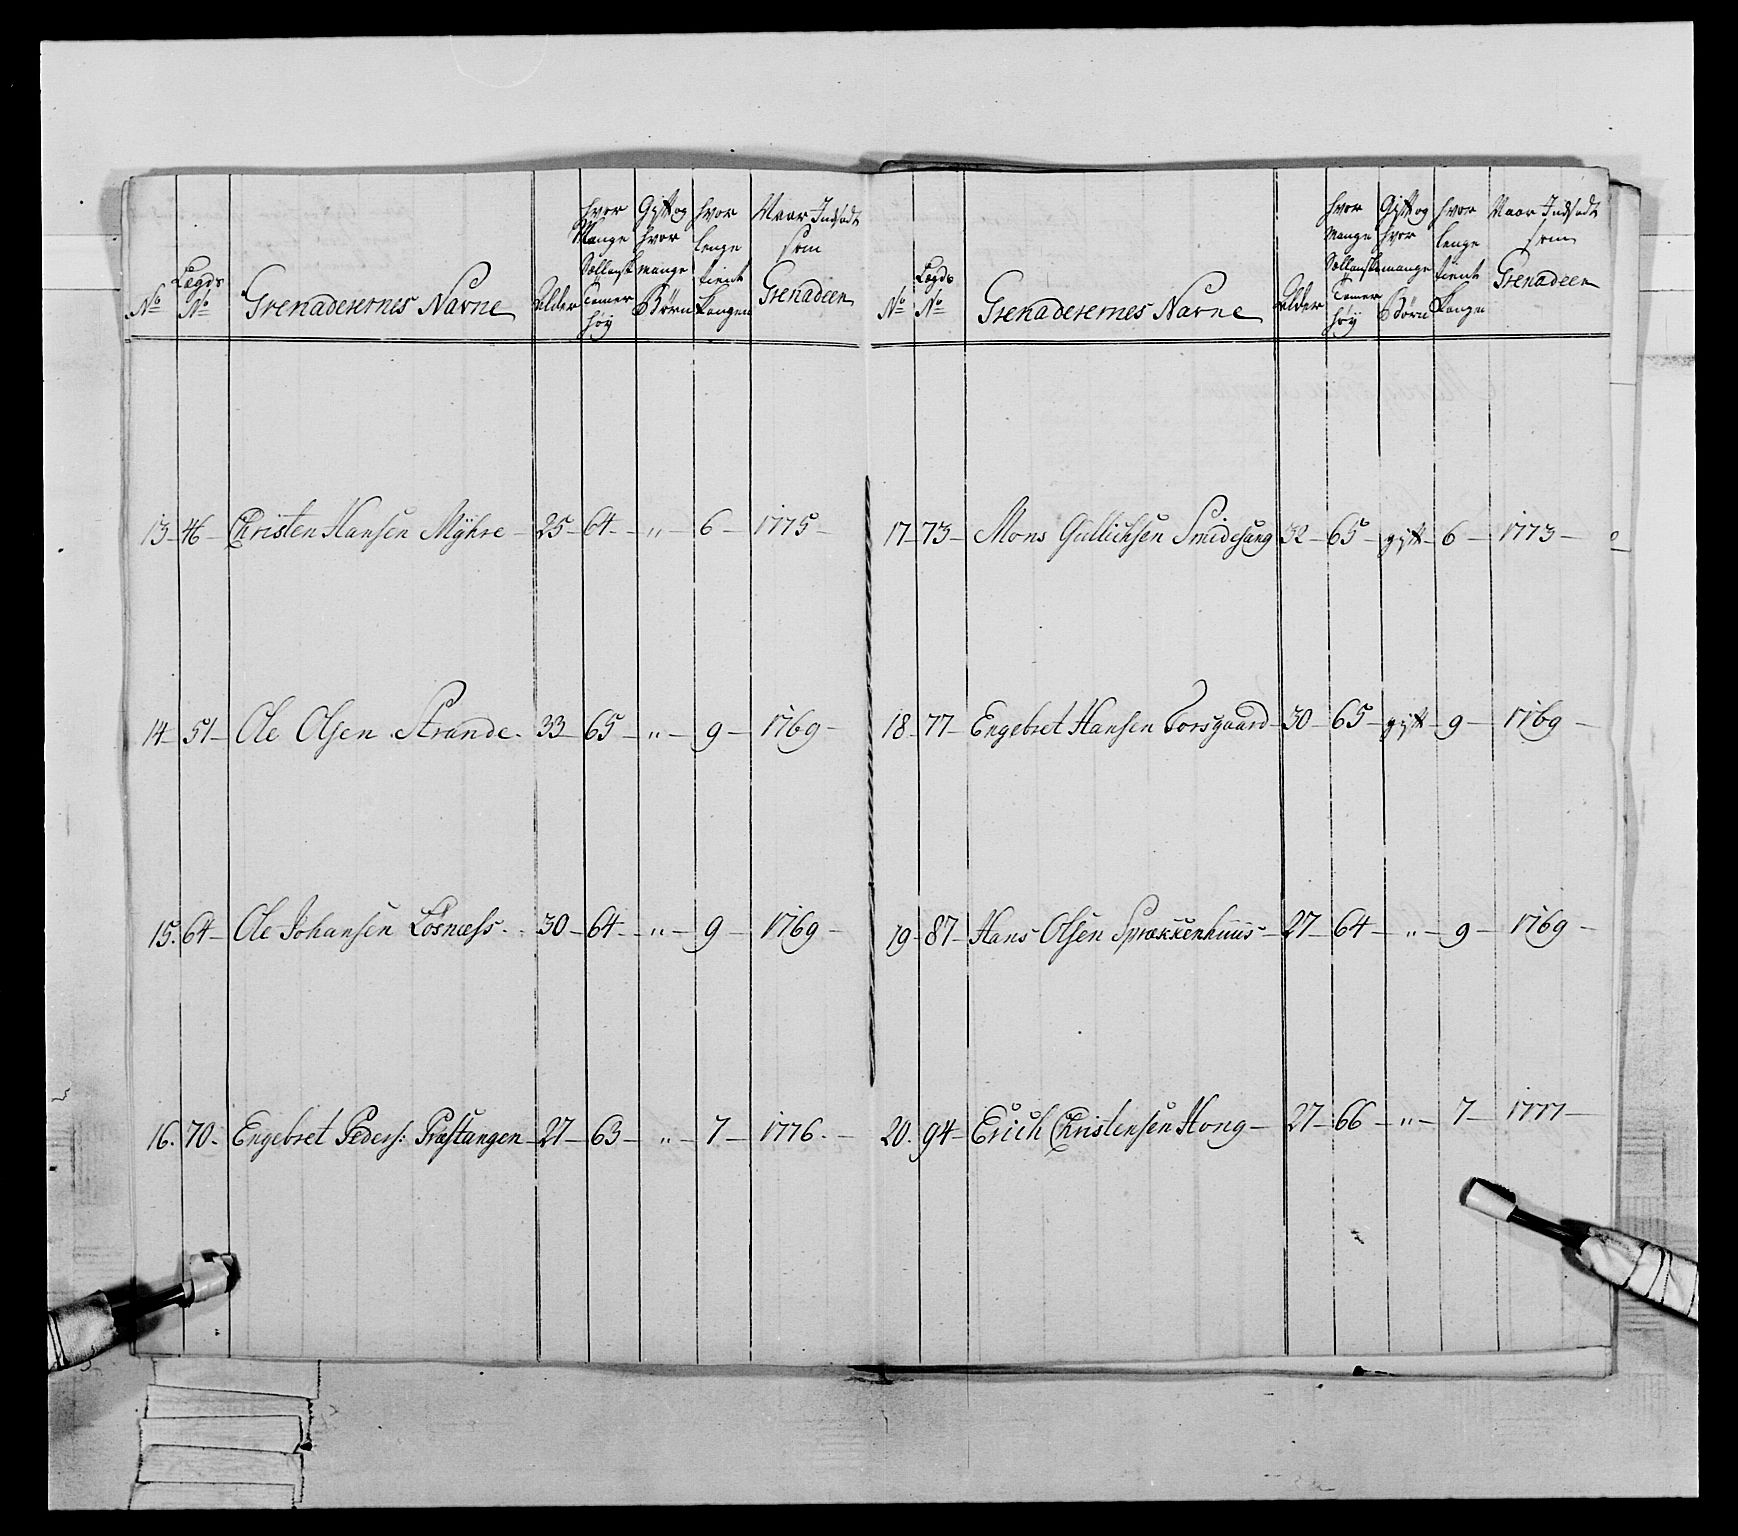 No
Lægds No
Grenaderernes Navne
Alder
hvor Mange Sællansk Tomer høy
Gift og hvor mange Børn
hvor lenge tient Kongen
Naar Indsadt som Grenadeer
13 - 46 - Christen Hansen Myhre - 25 - 64 - " - 6 - 1775 -
14 - 51 - Ole Olsen Strande - 33 - 65 - " - 9 - 1769 -
15. 64 - Ole Johansen Løsness - 30 - 64 - " - 9 - 1769 -
16. 70. Engebret Peders: Præstangen - 27 - 63 - " - 7 - 1776. -
No
Lægds No
Grenaderernes Navne
Alder
hvor Mange Sællansk Tomer høy
Gift og hvor mange Børn
hvor lenge tient Kongen
Naar Indsadt som Grenadeer
17 - 73 - Mons Gullichsen Smidesang 32 - 65 - gift - 6 - 1773 -
18 - 77 - Engebret Hansen Torsgaard - 30 - 65 - gift - 9 - 1769 -
19 - 87 - Hans Olsen Sprækkenhuus - 27 - 64 - " - 9 - 1769 -
20. 94 - Erich Christensen Hong - 27 - 66 - " - 7 - 1777 -